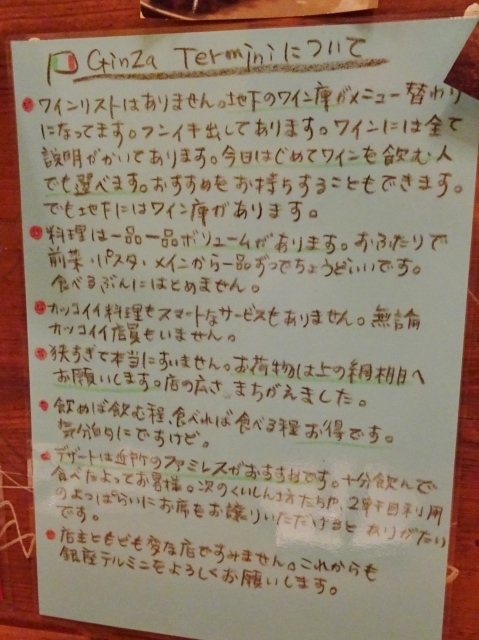 Ginza Terminiについて
ワインリストはありません。地下のワイン庫がメニュー替わり
になってます。フンイキ出してあります。ワインには全て
説明がかいてあります。今日はじめてワインを飲む人
でも選べます。おすすめをお持ちすることもできます。
でも地下にはワイン庫があります。
料理は一品一品ボリュームがあります。おふたりで
前菜・パスタ・メインから一品ずつでちょうどいいです。
食べるぶんにはとめません。
カッコイイ料理もスマートなサービスもありません。無論
カッコイイ店員もいません。
狭すぎて本当にすいません。お荷物は上の網棚へ
お願いします。店の広さ、まちがえました。
飲めば飲む程、食べれば食べる程お得です。
気分的にですけど。
デザートは近所のファミレスがおすすめです。十分飲んで
食べたよってお客様。次のくいしん方たちや、2軒目利用
のよっぱらいにお席をお譲りいただけるとありがたい
です。
店主ともども変な店ですみません。これからも
銀座テルミニをよろしくお願いします。